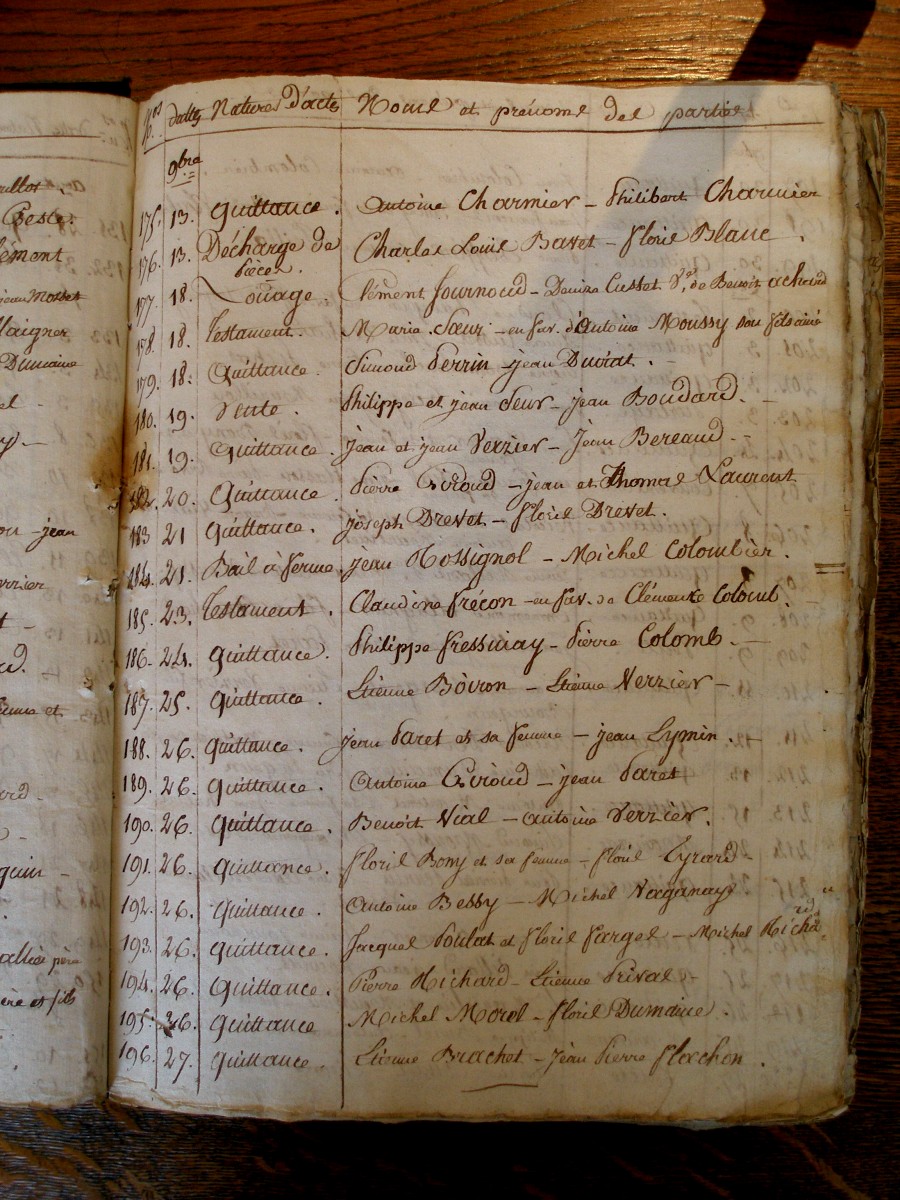 ullot.
Ceste.
lément
jean Mosset
Maigner
Dumaine
el -
y. -
ou - jean
rrier
t -
d.
emme et
ard -
quin -
allier père
ère et fils
N.os dattes Natures d'actes Noms et prénoms des parties
9bre
175. 13. Quittance. Antoine Charmier - Philibert Charmier
176. 13. Décharge de pièces. Charles Louis Bavet - Floris Blanc.
177. 18. Louage. Clément Journoud - Denize Cusset Vve de Benoit achard
178. 18. Testament. Marie Sœur - en fav. d'Antoine Moussy son fils ainé
179. 18. Quittance. Simond Perrin - jean Duvrat.
180. 19. Vente. Philippe et jean Seur - jean Boudard. -
181. 19. Quittance. Jean et jean Verzier - Jean Bereaud. -
182. 20. Quittance. Pierre Giroud - jean et Thomas Laurent
183 21 Quittance. joseph Drevet - Floris Drevet.
184. 21. Bail à ferme. jean Rossignol - Michel Colombier.
185. 23. Testament. Claudine Frécon - en fav. de Clémente Colomb.
186. 24. Quittance. Philippe Fressinay - Pierre Colomb. -
187. 25. Quittance. Etienne Boiron - Etienne Verzier -
188. 26. Quittance. Jean Paret et sa femme - jean Eymin.
189. 26. Quittance. Antoine Giroud - jean Paret
190. 26. Quittance. Benoit Vial - Antoine Verzier.
191. 26. Quittance. Floris Bony et sa femme - Floris Eyrard -
192. 26. Quittance. Antoine Bessy - Michel Naganay
193. 26. Quittance. Jacques Poulat et Floris Farges - Michel Richard
194. 26. Quittance. Pierre Richard - Etienne Prival -
195. 26. Quittance Michel Morel - Floris Dumaine.
196. 27. Quittance. Etienne Brachet - Jean Pierre Flachon.